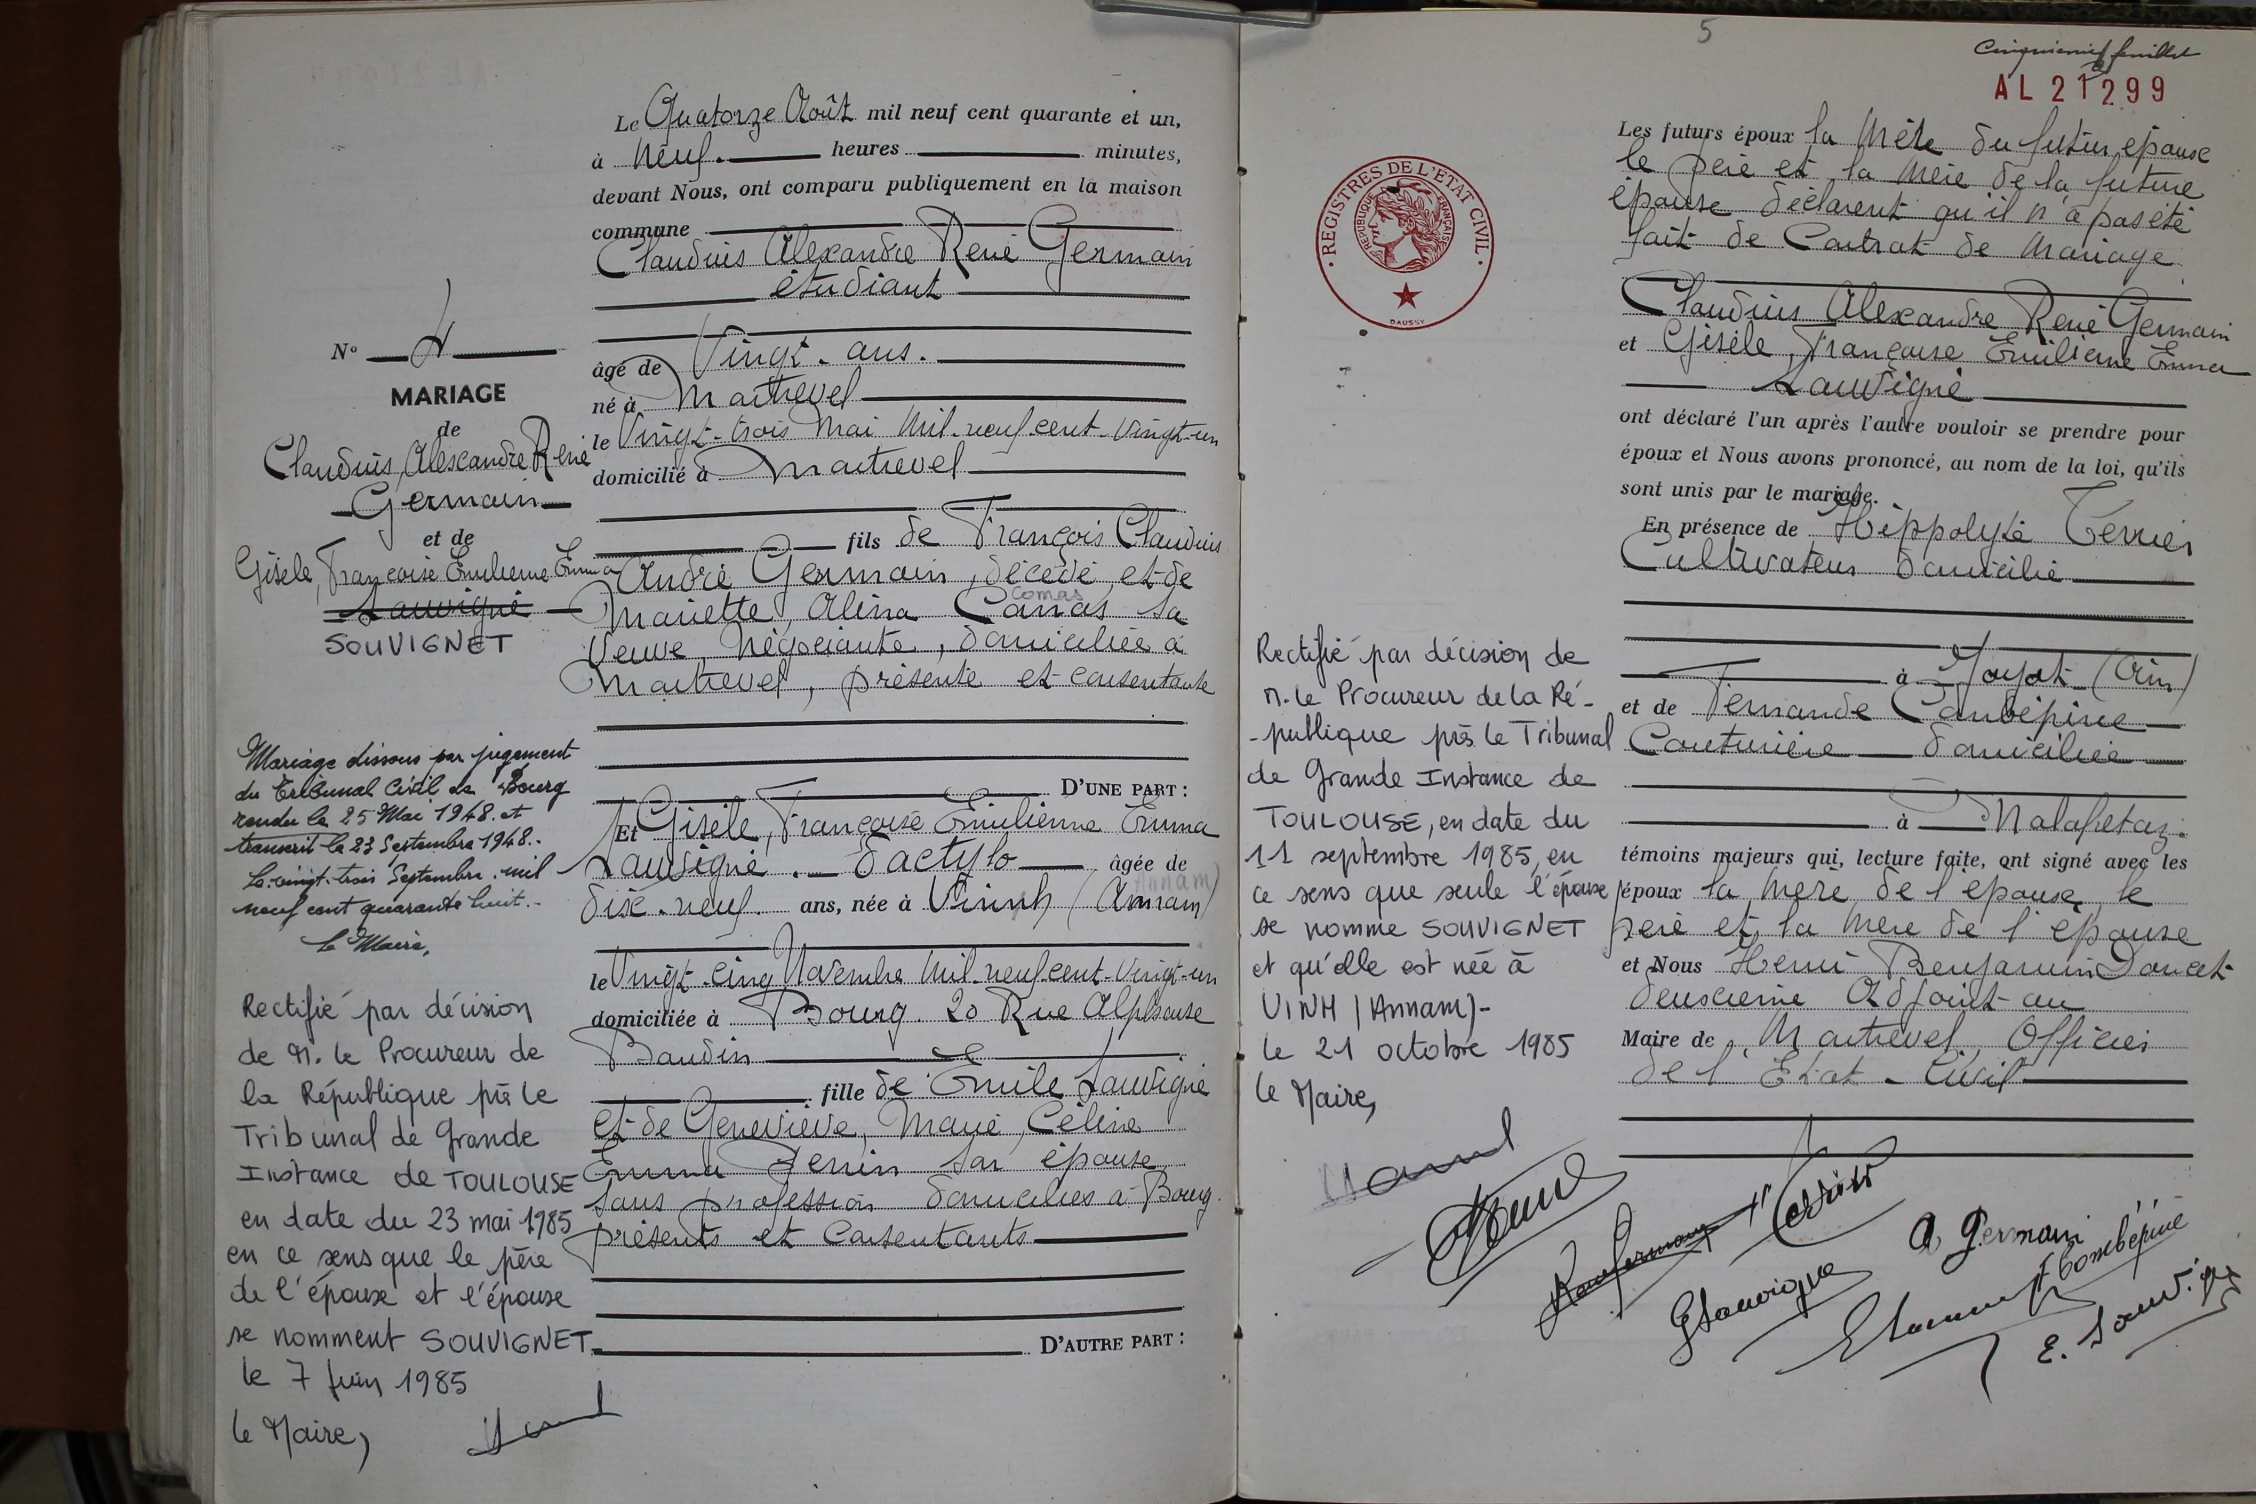 Le Quatorze Août mil neuf cent quarante et un,
à Neuf. heures minutes,
devant Nous, ont comparu publiquement en la maison
commune
Claudius Alexandre René Germain
étudiant
âgé de Vingt. ans.
né à Martrevel
le Vingt-trois Mai Mil-neuf cent-Vingt-un
domicilié à Martrevel
fils de François Claudius
André Germain, décédé, et de
Comas
Mariette, Alina Canas sa
Veuve, Négociante, domiciliée à
Martrevel, présente et consentante
D'UNE PART :
Et Gisèle, Françoise Emilienne Emma
Lauvigné. - Dactylo âgée de
Annam)
dix-neuf ans, née à Vininh (Annam)
le Vingt-cinq Novembre Mil-neuf cent-Vingt-un
domiciliée à Bourg. 20 Rue Alphonse
Baudin
fille de Emile Lauvigné
et de Geneviève, Marie, Céline
Emma Perrin son épouse
sans profession domiciliés à Bourg.
présents et consentants
D'AUTRE PART :
N° 4
MARIAGE
de
Claudius, Alexandre René
Germain
et de
Gisèle, Françoise Emilienne Emma
Lauvigné
SOUVIGNET
Mariage dissous par jugement
du Tribunal Civil de Bourg
rendu le 25 Mai 1948. et
transcrit le 23 Septembre 1948..
Le vingt-trois Septembre. mil
neuf cent quarante huit.-
le Maire,
Rectifié par décision
de M. le Procureur de
la République près le
Tribunal de Grande
Instance de TOULOUSE
en date du 23 mai 1985
en ce sens que le père
de l'épouse et l'épouse
se nomment SOUVIGNET.
le 7 Juin 1985
le Maire,
5
Cinquième feuillet
AL 21299
REGISTRES DE L'ETAT CIVIL
REPUBLIQUE FRANÇAISE
DAUSSY
Les futurs époux la Mère du futur, épouse
le père et la Mère de la future
épouse déclarent qu'il n'a pas été
fait de Contrat de Mariage
Claudius Alexandre René Germain
et Gisèle, Françoise Emilienne Emma
Lauvigné
ont déclaré l'un après l'autre vouloir se prendre pour
époux et Nous avons prononcé, au nom de la loi, qu'ils
sont unis par le mariage.
En présence de Hippolyte Terrier
Cultivateur domicilié
à Jayat (Ain)
et de Fernande Combépine
Couturière domiciliée
à Malafretaz.
témoins majeurs qui, lecture faite, ont signé avec les
époux la Mère de l'épouse, le
père et la Mère de l'épouse
et Nous Henri Benjamin Doucet
deuxième Adjoint au
Maire de Martrevel, Officier
de l'Etat-Civil
Rectifié par décision de
M. le Procureur de la Ré-
-publique près le Tribunal
de Grande Instance de
TOULOUSE, en date du
11 septembre 1985, en
ce sens que seule l'épouse
se nomme SOUVIGNET
et qu'elle est née à
VINH (Annam)-
le 21 octobre 1985
le Maire,
A Germain
F Combépine
GLauvigné
E. Lauvigné